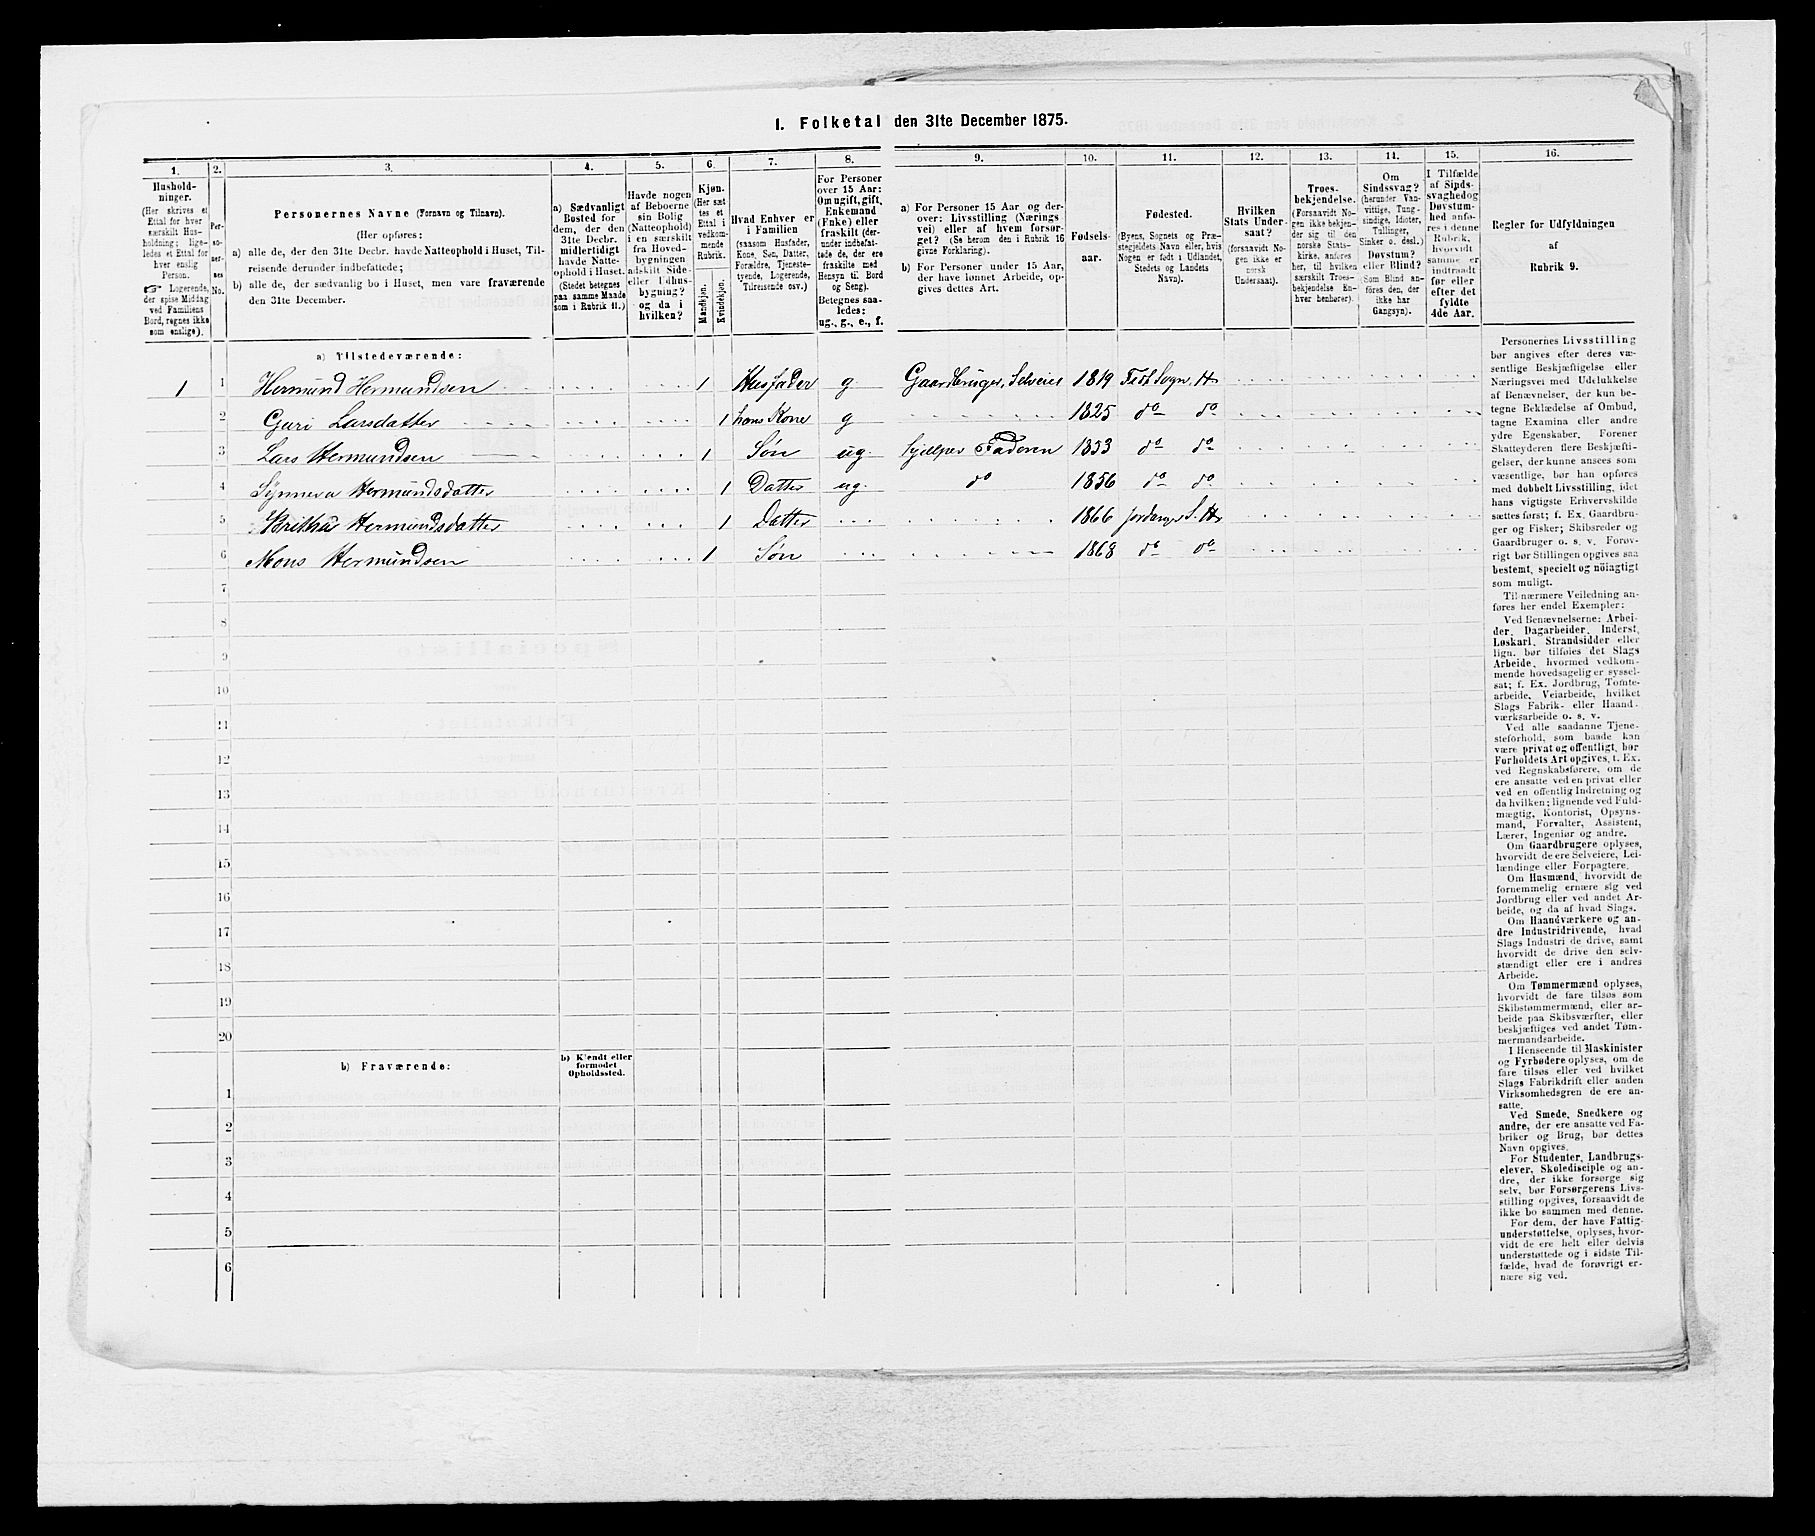 I. Folketal den 31te December 1875.
1. 2. 3. 4. 5. 6. 7. 8. 9. 10. 11. 12. 13. 14. 15. 16.
Hushold-
ninger.
(Her skrives et
Ettal for hver
særskilt Hus-
holdning; lige-
ledes et Ettal for
hver enslig
Person.
☞ Logerende,
der spise Middag
ved Familiens
Bord, regnes ikke
som enslige).
Per-
so-
ner-
nes
No.
Personernes Navne (Fornavn og Tilnavn).
(Her opføres:
a) alle de, der den 31te Decbr. havde Natteophold i Huset, Til-
reisende derunder indbefattede;
b) alle de, der sædvanlig bo i Huset, men vare fraværende
den 31te December.
a) Sædvanligt
Bosted for
dem, der den
31te Decbr.
midlertidigt
havde Natte-
ophold i Huset.
(Stedet betegnes
paa samme Maade
som i Rubrik 11.)
Havde nogen
af Beboerne
sin Bolig
(Natteophold)
i en særskilt
fra Hoved-
bygningen
adskilt Side-
eller Udhus-
bygning?
og da i
hvilken?
Kjøn.
(Her sæt-
tes et
Ettal i
vedkom-
mende
Rubrik.
Mandkjøn.
Kvindekjøn.
Hvad Enhver er
i Familien
(saasom Husfader,
Kone, Søn, Datter,
Forældre, Tjeneste-
tyende, Logerende,
Tilreisende osv.)
For Personer
over 15 Aar:
Om ugift, gift,
Enkemand
(Enke) eller
fraskilt (der-
under indbefat-
tede de, der ere
fraskilte med
Hensyn til Bord
og Seng).
Betegnes saa-
ledes:
ug., g., e., f.
a) For Personer 15 Aar og der-
over: Livsstilling (Nærings
vei) eller af hvem forsør-
get? (Se herom den i Rubrik 16
givne Forklaring).
b) For Personer under 15 Aar,
der have lønnet Arbeide, op-
gives dettes Art.
Fødsels-
aar.
Fødested.
(Byens, Sognets og Præ-
stegjeldets Navn eller, hvis
Nogen er født i Udlandet,
Stedets og Landets
Navn).
Hvilken
Stats Under-
saat?
(forsaavidt No-
gen ikke er
norsk
Undersaat).
Troes-
bekjendelse.
(Forsaavidt No-
gen ikke bekjen-
der sig til den
norske Stats-
kirke, anføres
her, til hvilken
særskilt Troes-
bekjendelse En-
hver henhører).
Om
Sindssvag?
(herunder Van-
vittige, Tung-
sindige, Idioter,
Sinker o. desl.)
Døvstum?
eller Blind?
(Som Blind an-
føres den, der
ikke har
Gangsyn).
I Tilfælde
af Sinds-
svaghed og
Døvstum-
hed anfø-
res i denne
Rubrik,
hvorvidt
samme er
indtraadt
før eller
efter det
fyldte
4de Aar.
Regler for Udfyldningen
af
Rubrik 9.
a) Tilstedeværende:
1 1 Hermund Hermundsen 1 Husfader g Gaardbruger, Selveier 1819 Feds Sogn, H
2 Guri Larsdatter 1 hans Kone g 1825 do do
3 Lars Hermundsen 1 Søn ug. hjelper Faderen 1853 do do
4 Synneva Hermundsdatter 1 Datter ug. do 1856 do do
5 Britha Hermundsdatter 1 Datter 1866 Jordanger S. H
6 Mons Hermundsen 1 Søn 1868 do do
7
8
9
10
11
12
13
14
15
16
17
18
19
20
b) Fraværende:
b) Kjendt eller
formodet
Opholdssted.
1
2
3
4
5
6
Personernes Livsstilling
bør angives efter deres væ-
sentlige Beskjæftigelse eller
Næringsvei med Udelukkelse
af Benævnelser, der kun be-
tegne Beklædelse af Ombud,
tagne Examina eller andre
ydre Egenskaber. Forener
Skatteyderen flere Beskjæfti-
gelser, der kunne ansees som
væsentlige, bør han opføres
med dobbelt Livsstilling, idet
hans vigtigste Erhvervskilde
sættes først; f. Ex. Gaardbru-
ger og Fisker; Skibsreder og
Gaardbruger o. s. v. Forøv-
rigt bør Stillingen opgives saa
bestemt, specielt og nöiagtigt
som muligt.
Til nærmere Veiledning an-
føres her endel Exempler:
Ved Benævnelserne: Arbei-
der, Dagarbeider, Inderst,
Løskarl, Strandsidder eller
lign. bør tilføies det Slags
Arbeide, hvormed vedkom-
mende hovedsagelig er syssel-
sat; f. Ex. Jordbrug, Tomte-
arbeide, Veiarbeide, hvilket
Slags Fabrik- eller Haand-
værksarbeide o. s. v.
Ved alle saadanne Tjene-
steforhold, som baade kan
være privat og offentligt, bør
Forholdets Art opgives, t. Ex.
ved Regnskabsførere, om de
ere ansatte ved en privat eller
ved en offentlig Indretning og
da hvilken; lignende ved Fuld-
mægtig, Kontorist, Opsyns-
mand, Forvalter, Assistent,
Lærer, Ingeniør og andre.
Om Gaardbrugere oplyses,
hvorvidt de ere Selveiere, Lei-
lændinge eller Forpagtere.
Om Husmænd, hvorvidt de
fornemmelig ernære sig ved
Jordbrug eller ved andet Ar-
beide, og da af hvad Slags.
Om Haandværkere og an-
dre Industridrivende, hvad
Slags Industri de drive, samt
hvorvidt de drive den selv-
stændigt eller ere i andres
Arbeide.
Om Tømmermænd oplyses,
hvorvidt de fare tilsøs som
Skibstømmermænd, eller ar-
beide paa Skibsværfter, eller
beskjæftiges ved andet Tøm-
mermandsarbeide.
I Henseende til Maskinister
og Fyrbødere oplyses, om de
fare tilsøs eller ved hvilket
Slags Fabrikdrift eller anden
Virksomhedsgren de ere an-
satte.
Ved Smede, Snedkere og
andre, der ere ansatte ved Fa-
briker og Brug, bør dettes
Navn opgives.
For Studenter, Landbrugs-
elever, Skoledisciple og an-
dre, der ikke forsørge sig
selv, bør Forsørgerens Livs-
stilling opgives, forsaavidt de
ikke bo sammen med denne.
For dem, der have Fattig-
understøttelse, oplyses, hvor-
vidt de ere helt eller delvis
understøttede og i sidste Til-
fælde, hvad de forøvrigt er-
nære sig ved.